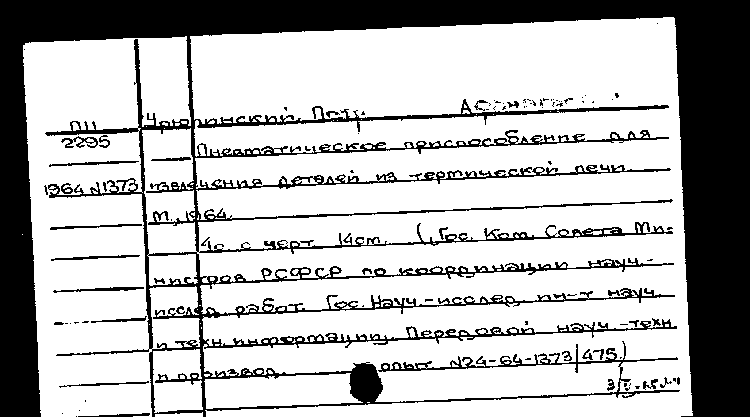 ПП Урюпинский, Петр
2295
Пневматическое приспособление для
1964 N1373 извлечения деталей из термической печи.
М., 1964.
4с. с черт. 14см. (Гос. Ком. Совета Ми-
нистров РСФСР по координации науч.-
исслед. работ. Гос. Науч.-исслед. ин-т науч.
и техн. информации. Передовой науч.-техн.
и производ. опыт. N24-64-1373/475)